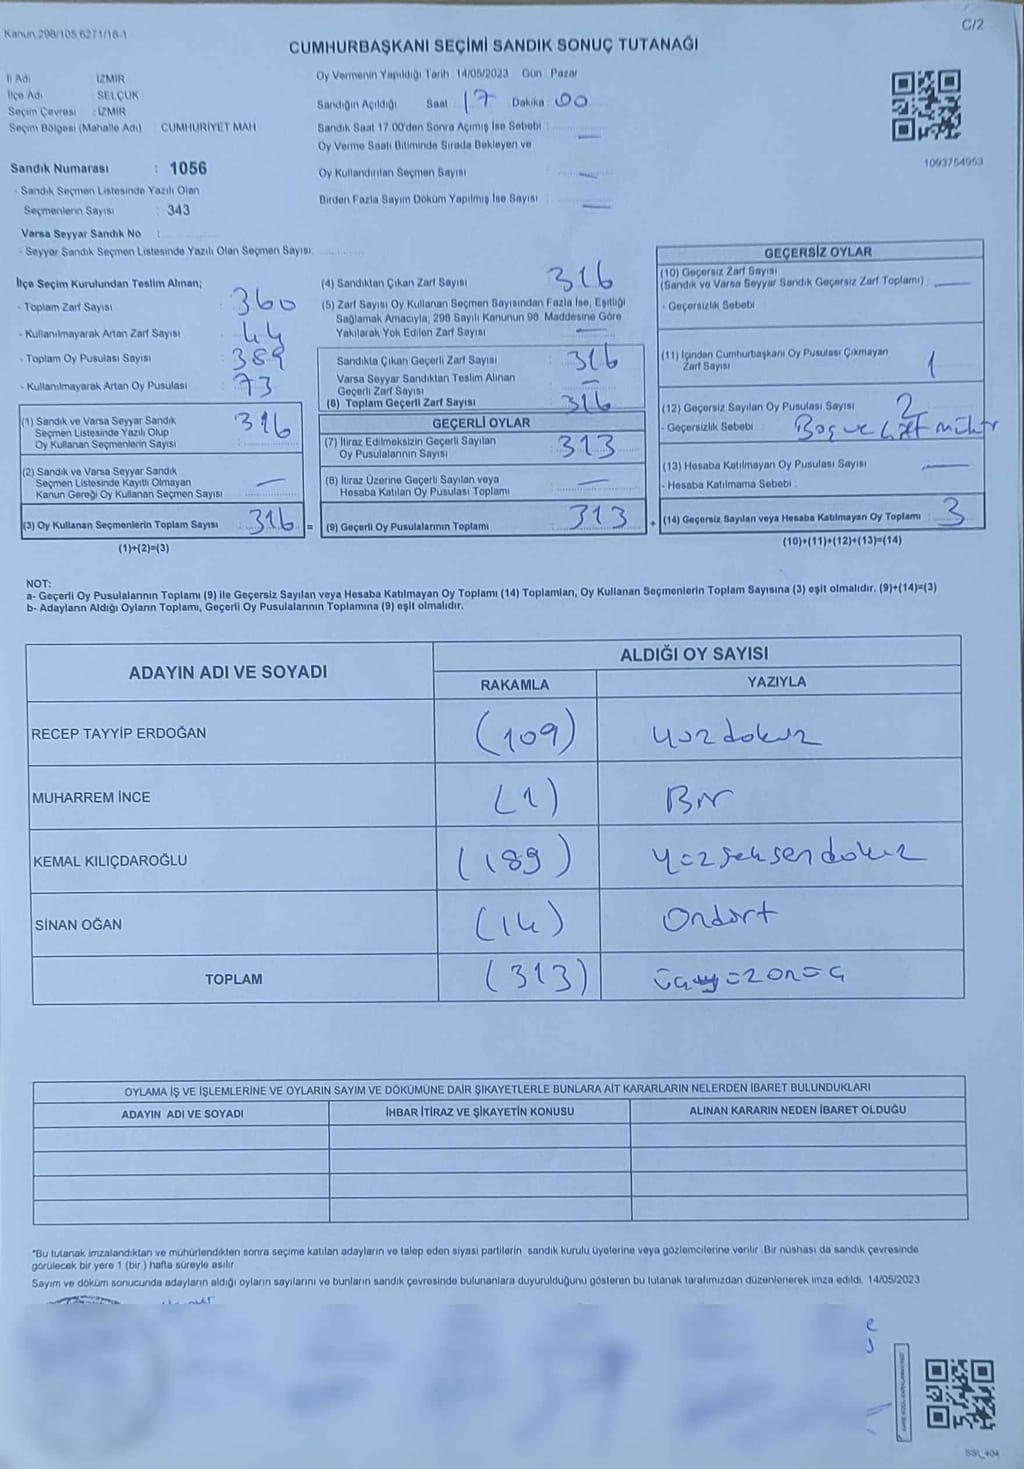 Kanun 298/105,6271/18-1
C/2
CUMHURBAŞKANI SEÇİMİ SANDIK SONUÇ TUTANAĞI
İl Adı : İZMİR
İlçe Adı : SELÇUK
Seçim Çevresi : İZMİR
Seçim Bölgesi (Mahalle Adı) : CUMHURİYET MAH
Sandık Numarası : 1056
- Sandık Seçmen Listesinde Yazılı Olan
Seçmenlerin Sayısı : 343
Varsa Seyyar Sandık No :
- Seyyar Sandık Seçmen Listesinde Yazılı Olan Seçmen Sayısı:
Oy Vermenin Yapıldığı Tarih : 14/05/2023 Gün : Pazar
Sandığın Açıldığı Saat : 17 Dakika : 00
Sandık Saat 17.00'den Sonra Açılmış İse Sebebi : —
Oy Verme Saati Bitiminde Sırada Bekleyen ve
Oy Kullandırılan Seçmen Sayısı : —
Birden Fazla Sayım Döküm Yapılmış İse Sayısı : —
1093754953
İlçe Seçim Kurulundan Teslim Alınan;
- Toplam Zarf Sayısı : 360
- Kullanılmayarak Artan Zarf Sayısı : 44
- Toplam Oy Pusulası Sayısı : 389
- Kullanılmayarak Artan Oy Pusulası : 73
(1) Sandık ve Varsa Seyyar Sandık
Seçmen Listesinde Yazılı Olup
Oy Kullanan Seçmenlerin Sayısı : 316
(2) Sandık ve Varsa Seyyar Sandık
Seçmen Listesinde Kayıtlı Olmayan
Kanun Gereği Oy Kullanan Seçmen Sayısı : —
(3) Oy Kullanan Seçmenlerin Toplam Sayısı : 316 =
(1)+(2)=(3)
(4) Sandıktan Çıkan Zarf Sayısı : 316
(5) Zarf Sayısı Oy Kullanan Seçmen Sayısından Fazla İse, Eşitliği
Sağlamak Amacıyla; 298 Sayılı Kanunun 98. Maddesine Göre
Yakılarak Yok Edilen Zarf Sayısı : —
Sandıkta Çıkan Geçerli Zarf Sayısı : 316
Varsa Seyyar Sandıktan Teslim Alınan
Geçerli Zarf Sayısı : —
(6) Toplam Geçerli Zarf Sayısı : 316
GEÇERLİ OYLAR
(7) İtiraz Edilmeksizin Geçerli Sayılan
Oy Pusulalarının Sayısı : 313
(8) İtiraz Üzerine Geçerli Sayılan veya
Hesaba Katılan Oy Pusulası Toplamı : —
(9) Geçerli Oy Pusulalarının Toplamı : 313 +
GEÇERSİZ OYLAR
(10) Geçersiz Zarf Sayısı
(Sandık ve Varsa Seyyar Sandık Geçersiz Zarf Toplamı) : —
- Geçersizlik Sebebi :
(11) İçinden Cumhurbaşkanı Oy Pusulası Çıkmayan
Zarf Sayısı : 1
(12) Geçersiz Sayılan Oy Pusulası Sayısı : 2
- Geçersizlik Sebebi : Boş ve çift mühür
(13) Hesaba Katılmayan Oy Pusulası Sayısı : —
- Hesaba Katılmama Sebebi :
(14) Geçersiz Sayılan veya Hesaba Katılmayan Oy Toplamı : 3
(10)+(11)+(12)+(13)=(14)
NOT:
a- Geçerli Oy Pusulalarının Toplamı (9) ile Geçersiz Sayılan veya Hesaba Katılmayan Oy Toplamı (14) Toplamları, Oy Kullanan Seçmenlerin Toplam Sayısına (3) eşit olmalıdır. (9)+(14)=(3)
b- Adayların Aldığı Oyların Toplamı, Geçerli Oy Pusulalarının Toplamına (9) eşit olmalıdır.
ADAYIN ADI VE SOYADI
ALDIĞI OY SAYISI
RAKAMLA YAZIYLA
RECEP TAYYİP ERDOĞAN (109) yüzdokuz
MUHARREM İNCE (1) Bir
KEMAL KILIÇDAROĞLU (189) yüzseksendokuz
SİNAN OĞAN (14) Ondört
TOPLAM (313) üçyüzonüç
OYLAMA İŞ VE İŞLEMLERİNE VE OYLARIN SAYIM VE DÖKÜMÜNE DAİR ŞİKAYETLERLE BUNLARA AİT KARARLARIN NELERDEN İBARET BULUNDUKLARI
ADAYIN ADI VE SOYADI İHBAR İTİRAZ VE ŞİKAYETİN KONUSU ALINAN KARARIN NEDEN İBARET OLDUĞU
*Bu tutanak imzalandıktan ve mühürlendikten sonra seçime katılan adayların ve talep eden siyasi partilerin sandık kurulu üyelerine veya gözlemcilerine verilir. Bir nüshası da sandık çevresinde
görülecek bir yere 1 (bir ) hafta süreyle asılır.
Sayım ve döküm sonucunda adayların aldığı oyların sayılarını ve bunların sandık çevresinde bulunanlara duyurulduğunu gösteren bu tutanak tarafımızdan düzenlenerek imza edildi. 14/05/2023
SSI_404